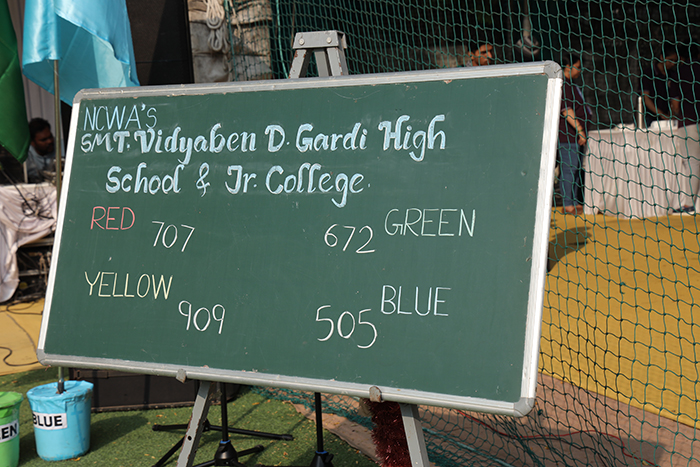 NCWA'S
SMT. Vidyaben D. Gardi High
School & Jr. College.
RED 707
672 GREEN
YELLOW 909
505 BLUE
BLUE